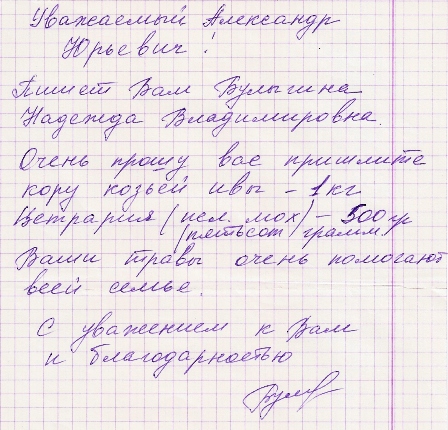 Уважаемый Александр
Юрьевич!
Пишет Вам Булыгина
Надежда Владимировна.
Очень прошу вас пришлите
кору козьей ивы – 1 кг
Цетрария (исл. мох) – 500 гр
(пятьсот грамм.)
Ваши травы очень помогают
всей семье.
С уважением к Вам
и благодарностью